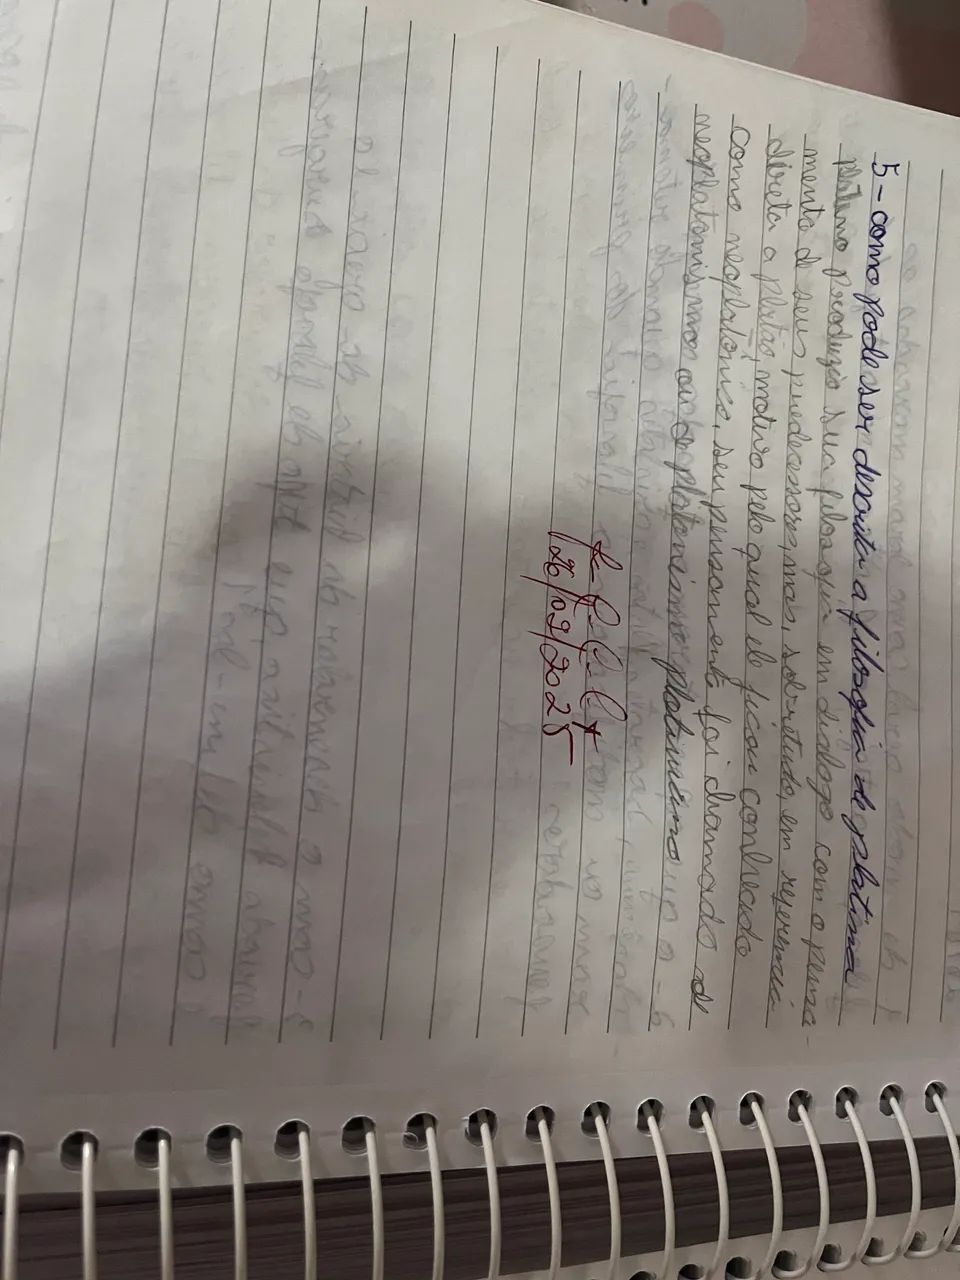 5- como pode ser descrita a filosofia de platina
plotino produziu sua filosofia em dialogo com o pensa-
mento de seus predecessores, mas, sobretudo, em referencia
direta a platão, motivo pelo qual ele ficou conhecido
como neoplatônico. seu pensamento foi chamado de
neoplatonismo ou platonismo plotiniano
26/09/2025